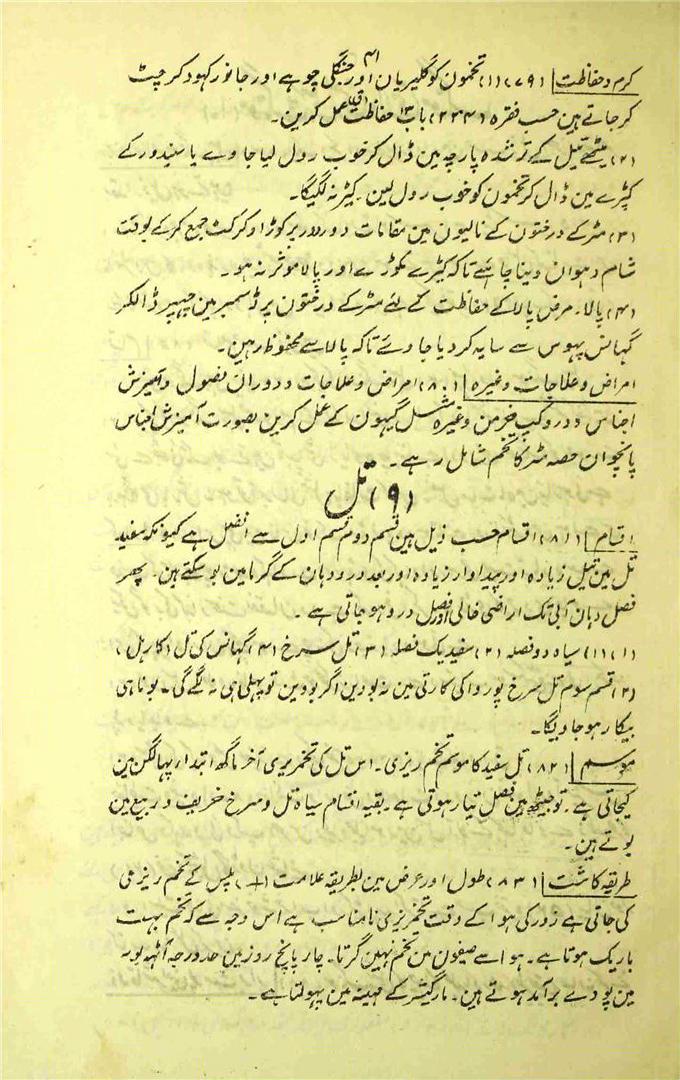 ۴۱
کرم و حفاظت (۷۹) (۱) تخمون کو گلیریان اور جنگلی چوہے اور جانور کہود کر چٹ
کر جاتے ہین حسب فقرہ (۲۳۴) باب ۱۳ حفاظت عمل کرین۔
(۲) میٹھے تیل کے تر شدہ پارچہ مین ڈال کر خوب رول لیا جاوے یا سنیدور کے
کپڑے مین ڈال کر تخمون کو خوب رول لین۔ کیڑ نہ لگیگا۔
(۳) مٹر کے درختون کے نالیون مین مقامات دور دور پر کوڑا و کرکٹ جمع کر کے بوقت
شام دہوان دینا چاہئے تاکہ کیڑے مکوڑے اور پالا موثر نہ ہو۔
(۴) پالا۔ مرض پالا کے حفاظت کے لئے مٹر کے درختون پر ڈسمبر مین چہپر ڈالکر
گہانس پہوس سے سایہ کر دیا جاوئے تاکہ پالا سے محفوظ رہین۔
امراض و علاجات وغیرہ (۸۰) امراض و علاجات و دوران بفصول و آمیزش
اجناس و درو کپ خرمن وغیرہ مثل گیہون کے عمل کرین بصورت آمیزش اجناس
پانچوان حصہ مٹر کا تخم شامل رہے۔
(۹) تل
اقسام (۸۱) اقسام حسب ذیل ہین قسم دوم قسم اول سے افضل ہے کیونکہ سفید
تل مین تیل زیادہ اور پیداوار زیادہ اور بعد درو دہان کے گرما مین بو سکتے ہین۔ پھر
فصل دہان آبی تک اراضی خالی اور فصل درو ہو جاتی ہے۔
(۱) (۱) سیاہ دو فصلہ (۲) سفید یک فصلہ (۳) تل سرخ (۴) گہانس کی تل (کارہل)
(۲) قسم سوم تل سرخ پوروا کی کارتی مین نہ بودین اگر بووین تو پہلی ہی نہ لگے گی۔ بونا ہی
بیکار ہو جاویگا۔
موسم (۸۲) تل سفید کا موسم تخم ریزی۔ اس تل کی تخمریزی آخر ماگھ ابتداء پہالگن مین
کیجاتی ہے۔ تو جیٹھ مین فصل تیار ہوتی ہے۔ بقیہ اقسام سیاہ تل و سرخ خریف و ربیع مین
بوتے ہین۔
طریقہ کاشت (۸۳) طول اور عرض مین بطریقہ علامت (+) پلس کے تخم ریزی
کی جاتی ہے زور کی ہوا کے وقت تخمریزی نامناسب ہے اس وجہ سے کہ تخم بہت
باریک ہوتا ہے۔ ہوا سے صفون مین تخم نہین گرتا۔ چار پانچ روز مین حد درجہ آٹہہ یوم
مین پودے برآمد ہوتے ہین۔ مارگیشر کے مہینہ مین پہولتا ہے۔